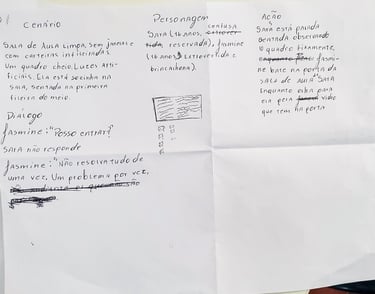 Cenário
Sala de Aula Limpa, sem janelas e
com carteiras enfileiradas
Um quadro cheio. Luzes Arti-
ficiais. Ela está sozinha na
sala, sentada na primeira
fileira do meio.
Diálogo
Jasmine: "Posso entrar?"
Sara não responde
Jasmine: "Não resolva tudo de
uma vez. Um problema por vez.
Personagem
Sara (16 anos, confusa
reservada), Jasmine
(16 anos, extrovertida e
brincalhona).
Ação
Sara está parada
sentada observando
o quadro fixamente,
Jasmi-
ne bate na porta da
sala de aula. Sara
enquanto olha para
ela pelo vidro
que tem na porta